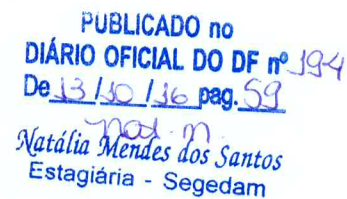 PUBLICADO no
DIÁRIO OFICIAL DO DF nº 194
De 13 / 10 / 16 pag. 59
Nat. m.
Natália Mendes dos Santos
Estagiária - Segedam